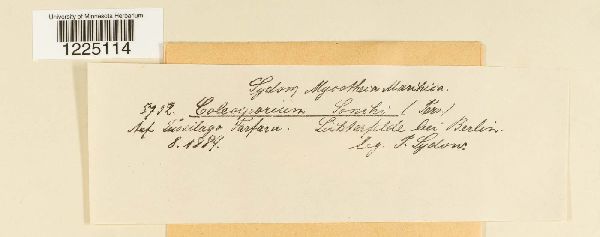 University of Minnesota Herbarium
1225114
Sydow, Mycotheca Marchica.
Coleosporium Sonchi (Pers)
Auf Tussilago Farfara. Lichterfelde bei Berlin.
8. 1884. leg. P. Sydow.